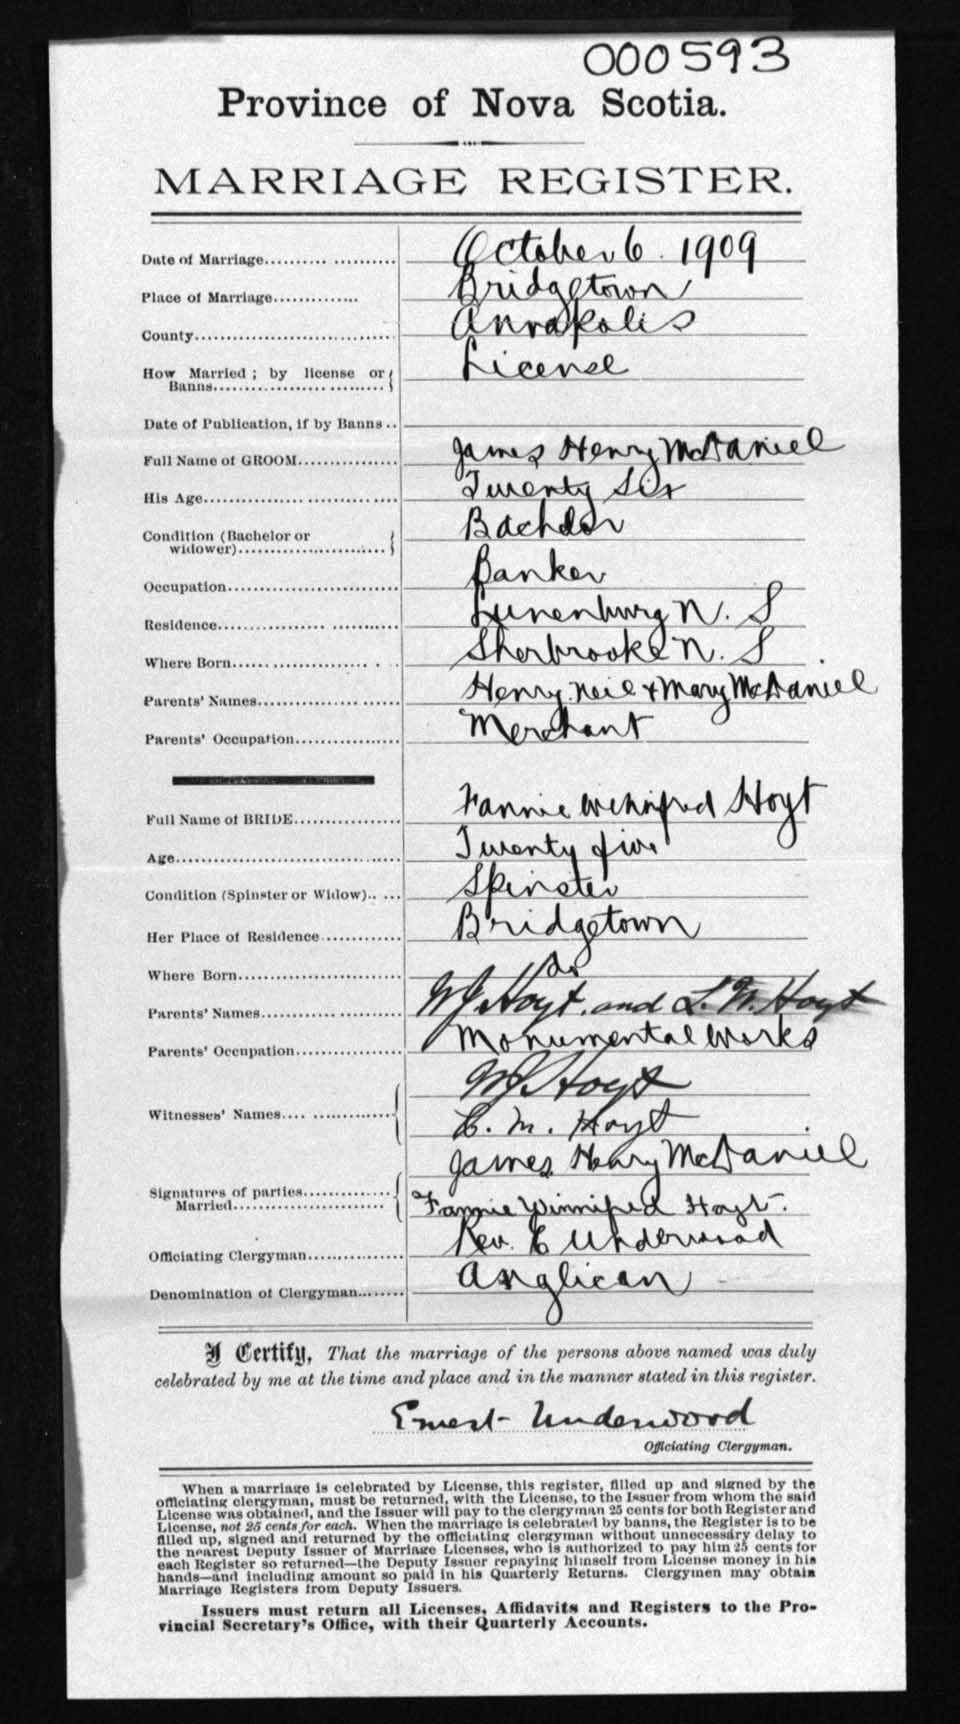 000593
Province of Nova Scotia.
MARRIAGE REGISTER.
Date of Marriage.......... October 6. 1909
Place of Marriage.............. Bridgetown
County.............................. Annapolis
How Married; by license or Banns.................... License
Date of Publication, if by Banns..
Full Name of GROOM............... James Henry McDaniel
His Age............................. Twenty Six
Condition (Bachelor or widower)...................... Bachelor
Occupation.......................... Banker
Residence........................... Lunenburg N. S
Where Born...................... Sherbrooke N. S
Parents' Names..................... Henry Neil & Mary McDaniel
Parents' Occupation................ Merchant
Full Name of BRIDE................ Fannie Winnifred Hoyt
Age.................................. Twenty five
Condition (Spinster or Widow)..... Spinster
Her Place of Residence............ Bridgetown
Where Born......................... do
Parents' Names..................... W J Hoyt. and L. W. Hoyt
Parents' Occupation................ Monumental Works
Witnesses' Names................ W J Hoyt
C. M. Hoyt
Signatures of parties Married......................... James Henry McDaniel
Fannie Winnifred Hoyt.
Officiating Clergyman.............. Rev. E Underwood
Denomination of Clergyman........ Anglican
I Certify, That the marriage of the persons above named was duly
celebrated by me at the time and place and in the manner stated in this register.
Ernest Underwood
Officiating Clergyman.
When a marriage is celebrated by License, this register, filled up and signed by the
officiating clergyman, must be returned, with the License, to the Issuer from whom the said
License was obtained, and the Issuer will pay to the clergyman 25 cents for both Register and
License, not 25 cents for each. When the marriage is celebrated by banns, the Register is to be
filled up, signed and returned by the officiating clergyman without unnecessary delay to
the nearest Deputy Issuer of Marriage Licenses, who is authorized to pay him 25 cents for
each Register so returned—the Deputy Issuer repaying himself from License money in his
hands—and including amount so paid in his Quarterly Returns. Clergymen may obtain
Marriage Registers from Deputy Issuers.
Issuers must return all Licenses, Affidavits and Registers to the Pro-
vincial Secretary's Office, with their Quarterly Accounts.